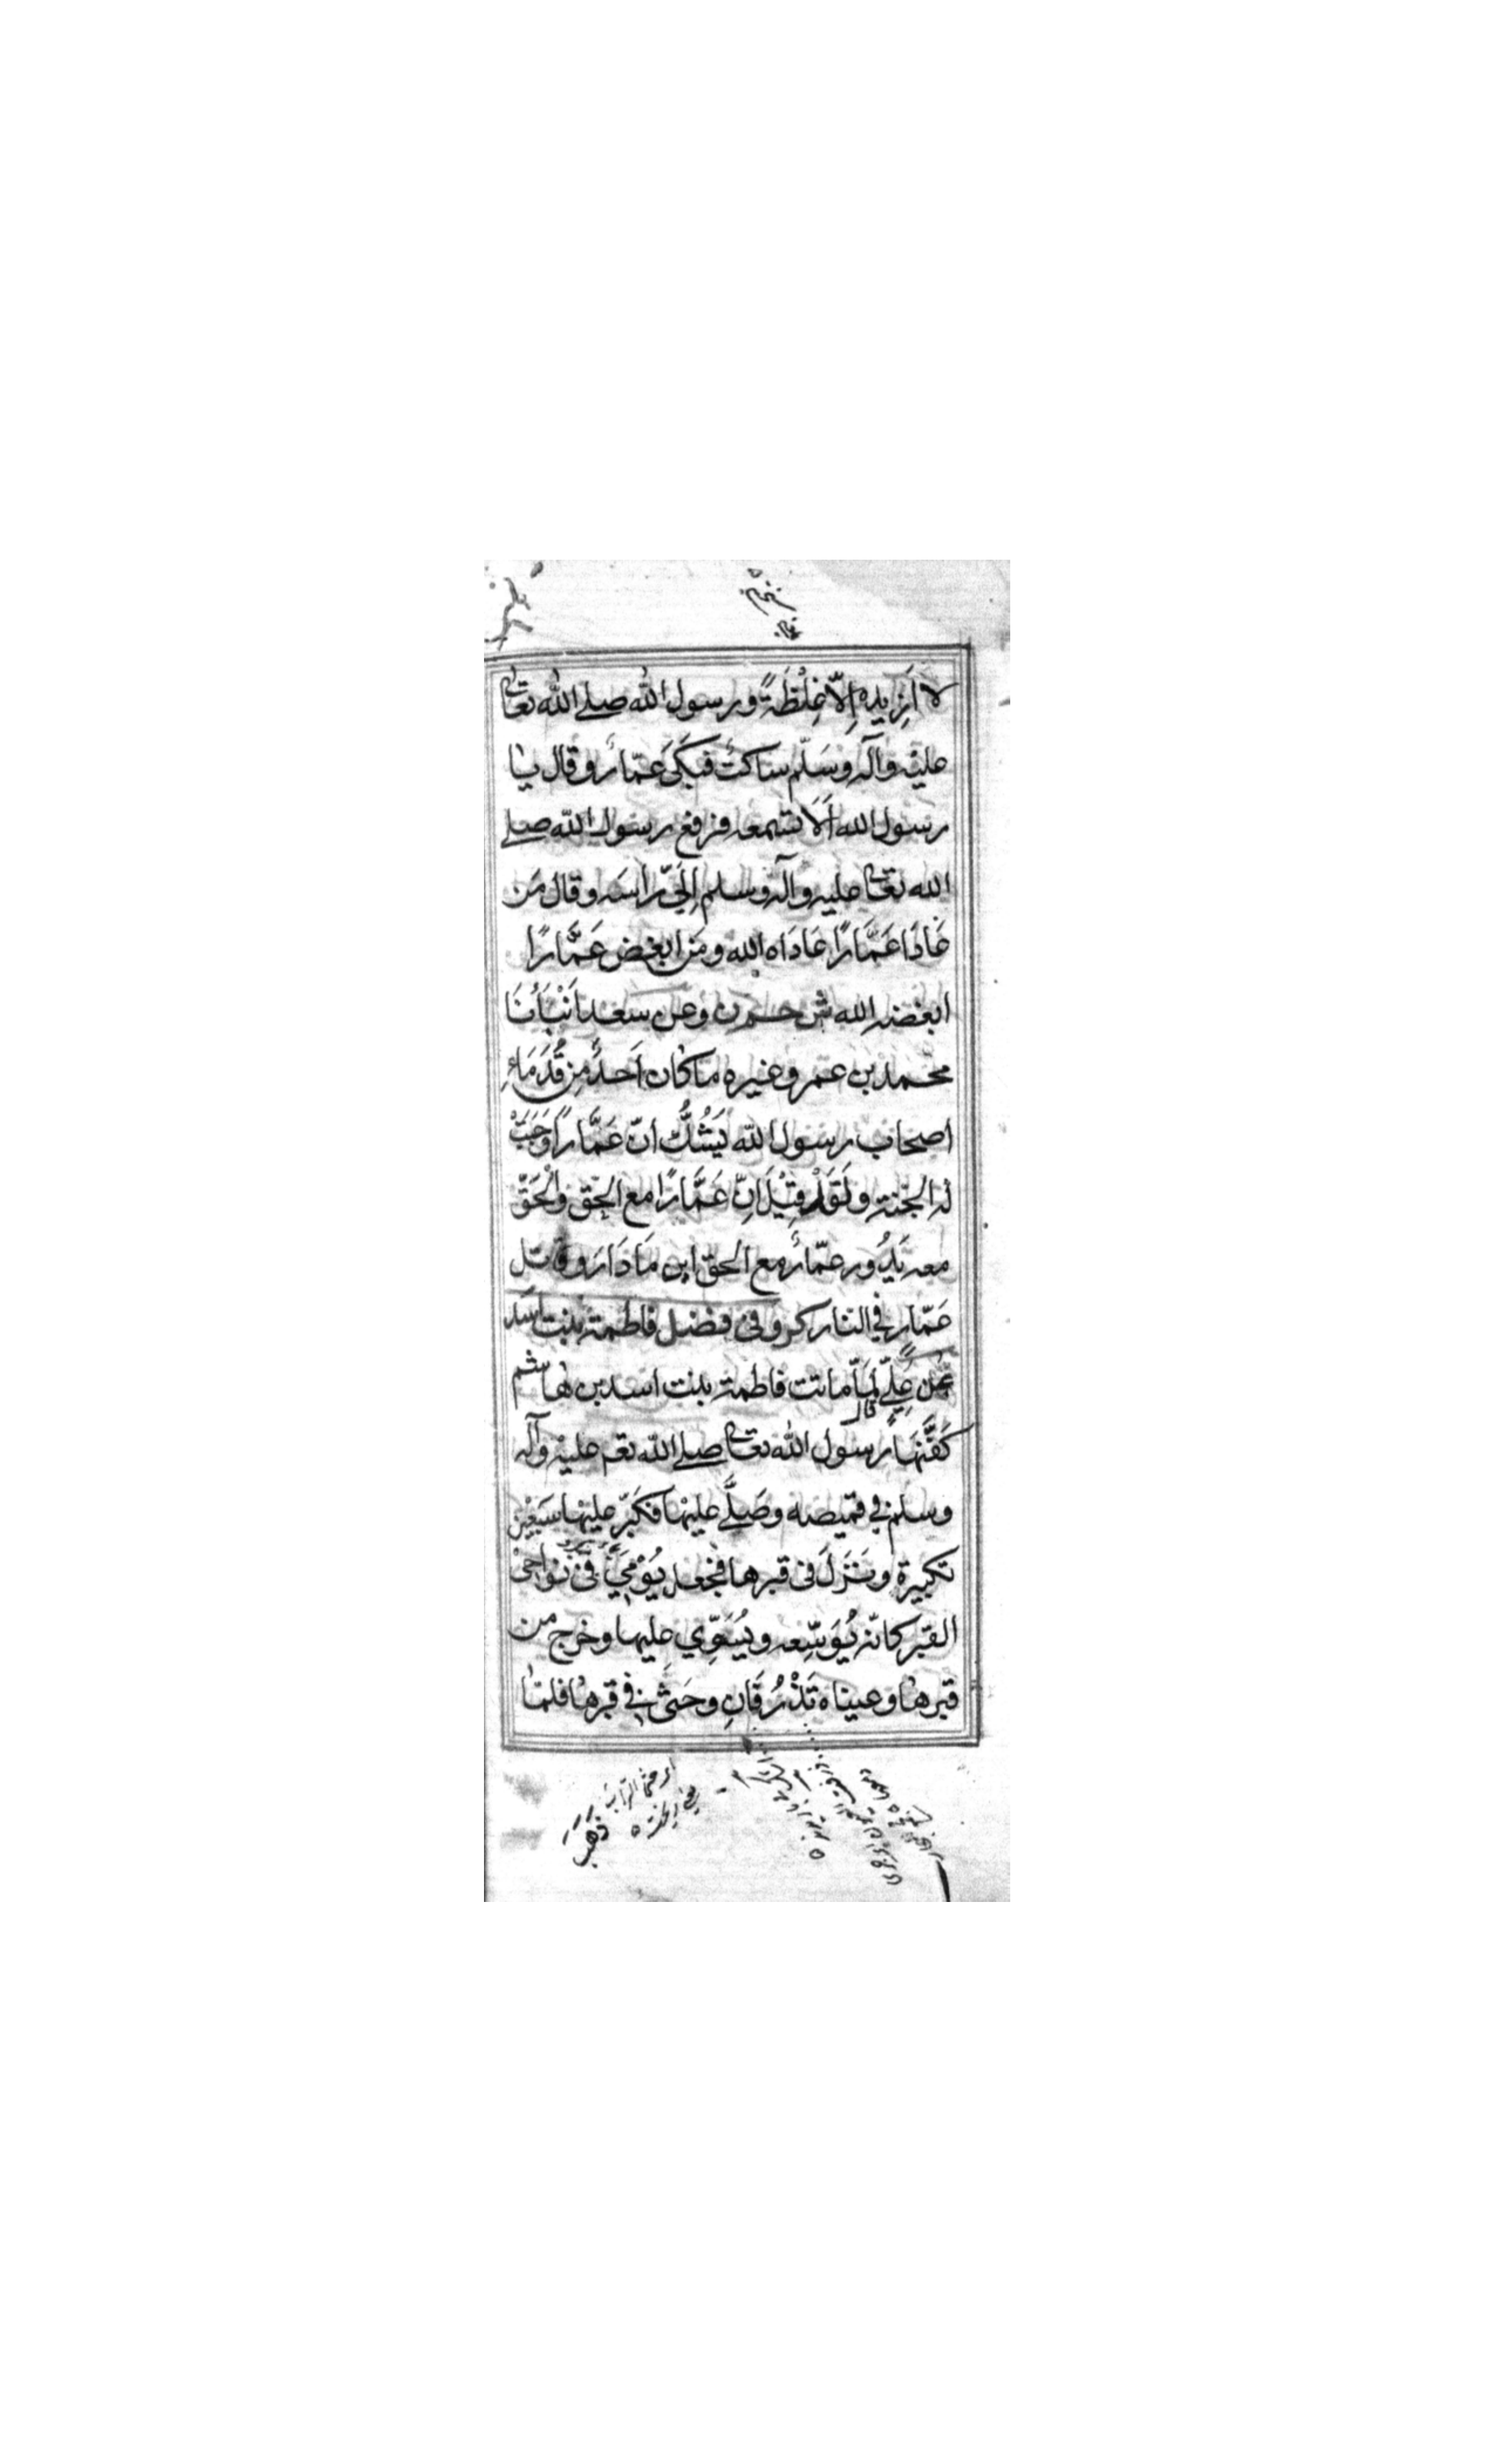 لا ازيده اِلّا غِلْظَةً ورسول الله صلے الله تعالى
عليه وآله وسَلّم ساكتٌ فبَكَىَ عَمّارٌ وقال يا
رسول الله اَلَا تسمعه فرفع رسول الله صلے
الله تعالى عليه وآله وسلم اِلَيّ رأسه وقال مَن
عَادَا عَمَّارًا عَادَاه الله ومَن ابغض عَمَّارًا
ابغضه الله ش حم ن وعن سعد اَنْبَأنَا
محمد بن عمر وغيره ما كان اَحدٌ مِن قُدَمَاءِ
اصحاب رسول الله يَشُكُّ انّ عَمَّارًا وَجَبَتْ
له الجنة ولَقَدْ قِيْلَ اِنّ عَمَّارًا مع الحق والحَقّ
معه يَدُور عمّارٌ مع الحق اين مَا دَارَ وقاتل
عَمّارٍ في النار كر وفى فضل فاطمة بنت اسد
عن علِيّ لَمّا ماتت فاطمة بنت اسد بن هاشم
كَفَّنَهَا رسول الله تعالى صلے الله تعم عليه وآله
وسلم في قميصه وصَلّے عليها فكَبّر عليها سَبْعِيْن
تكبيرة ونَزَلَ فى قبرها فجعل يُوْمِيُ فى نواحى
القبر كانّه يُوَسِّعه ويُسَوِّي عليها وخرج من
قبرها وعيناه تَذْرُفَانِ وحَثَى في قبرها فلمّا
ذَهَبَ